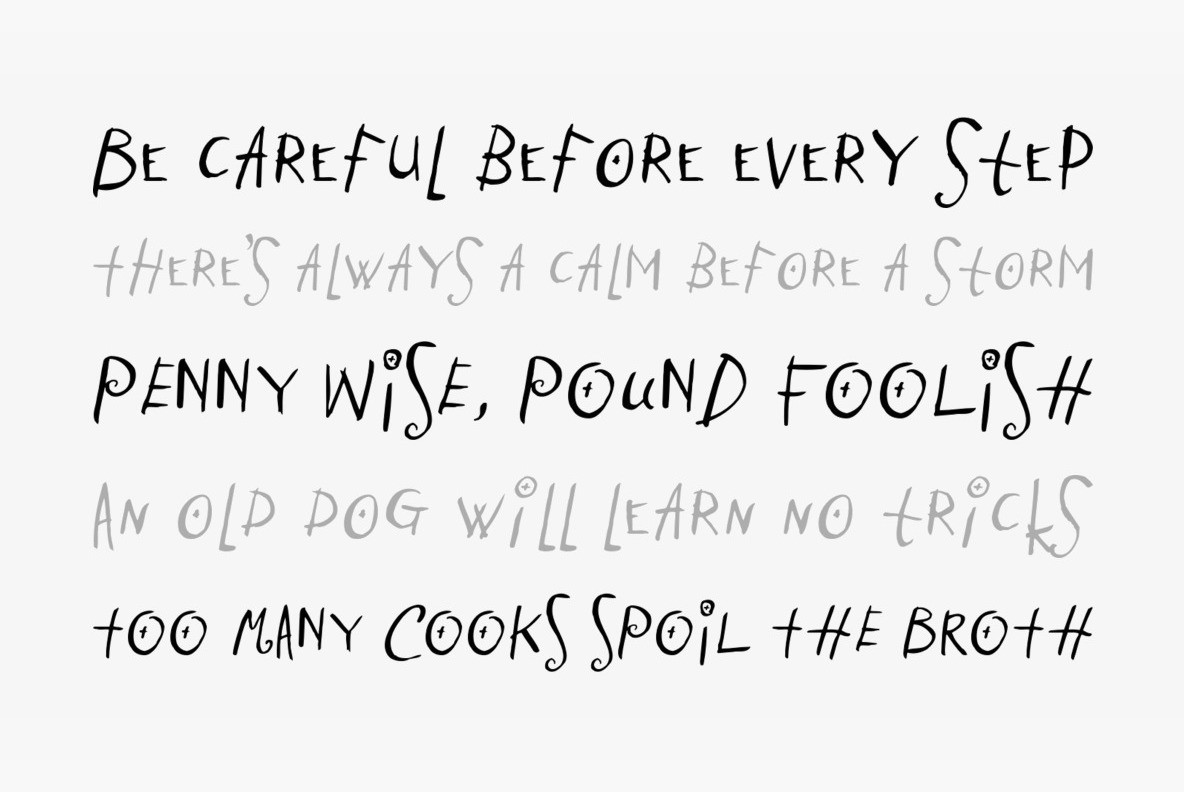 BE CAREFUL BEFORE EVERY STEP
THERE'S ALWAYS A CALM BEFORE A STORM
PENNY WiSE, POUND FOOLiSH
AN OLD DOG WiLL LEARN NO TRiCKS
TOO MANY COOKS SPOiL THE BROTH